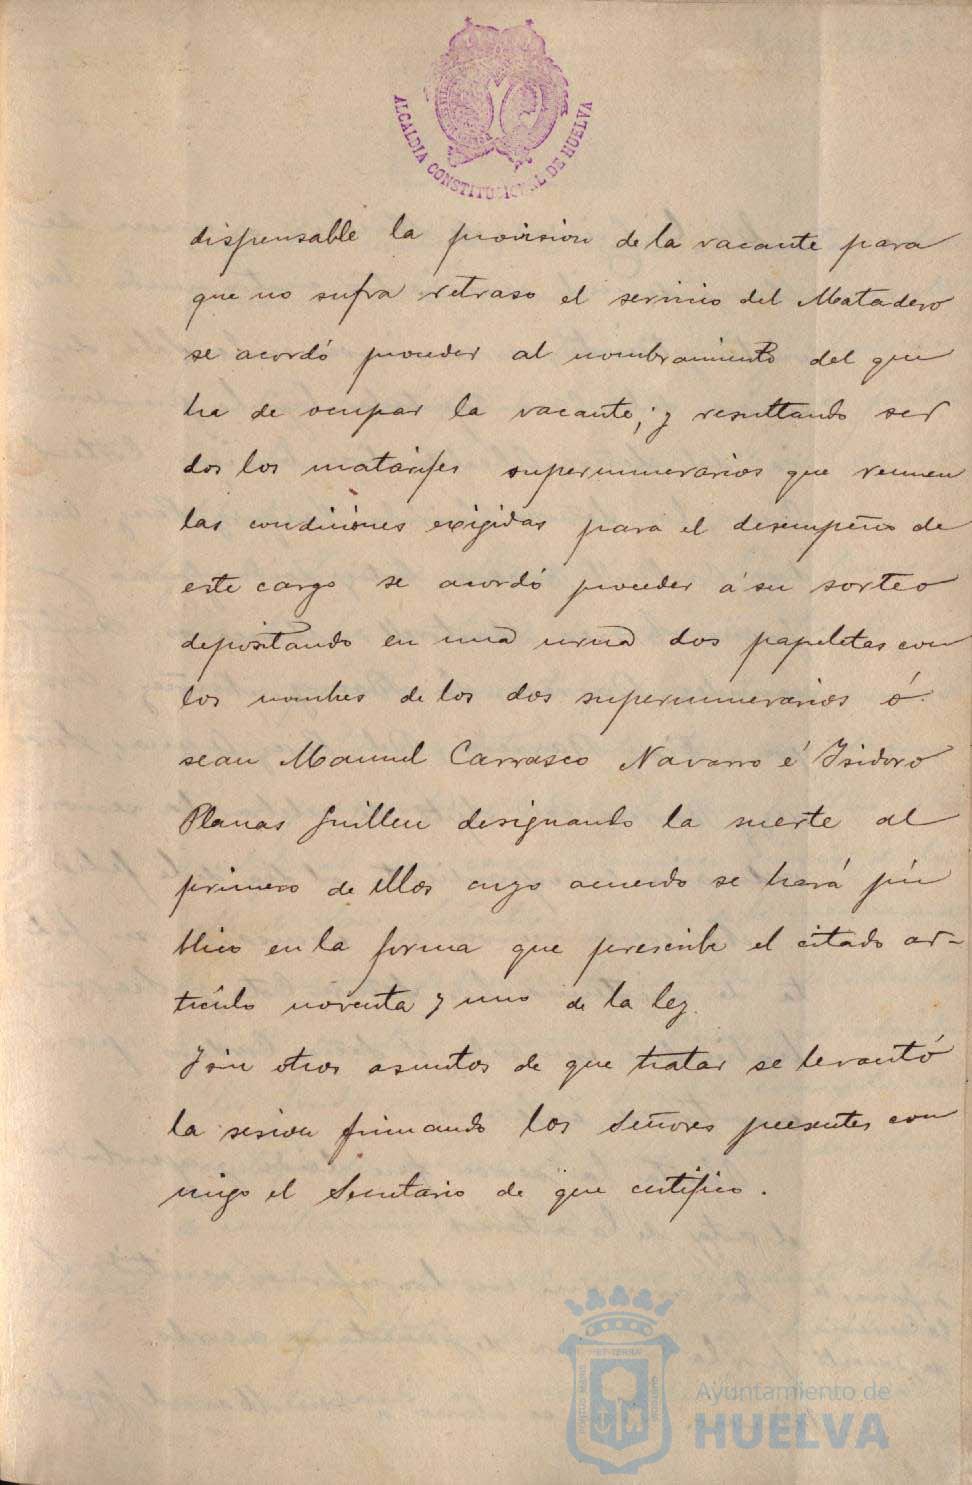 ALCALDIA CONSTITUCIONAL DE HUELVA
dispensable la provision de la vacante para
que no sufra retraso el servicio del Matadero
se acordó proceder al nombramiento del que
ha de ocupar la vacante; y resultando ser
dos los matarifes supernumerarios que reunen
las condiciones exigidas para el desempeño de
este cargo se acordó proceder á su sorteo
depositando en una urna dos papeletas con
los nombres de los dos supernumerarios ó
sean Manuel Carrasco Navarro é Isidoro
Planas Guillen designando la suerte al
primero de ellos cuyo acuerdo se hará pú
blico en la forma que prescribe el citado ar-
tículo noventa y uno de la ley.
Y sin otros asuntos de que tratar se levantó
la sesion firmando los Señores presentes con
migo el Secretario de que certifico.
Ayuntamiento de
HUELVA